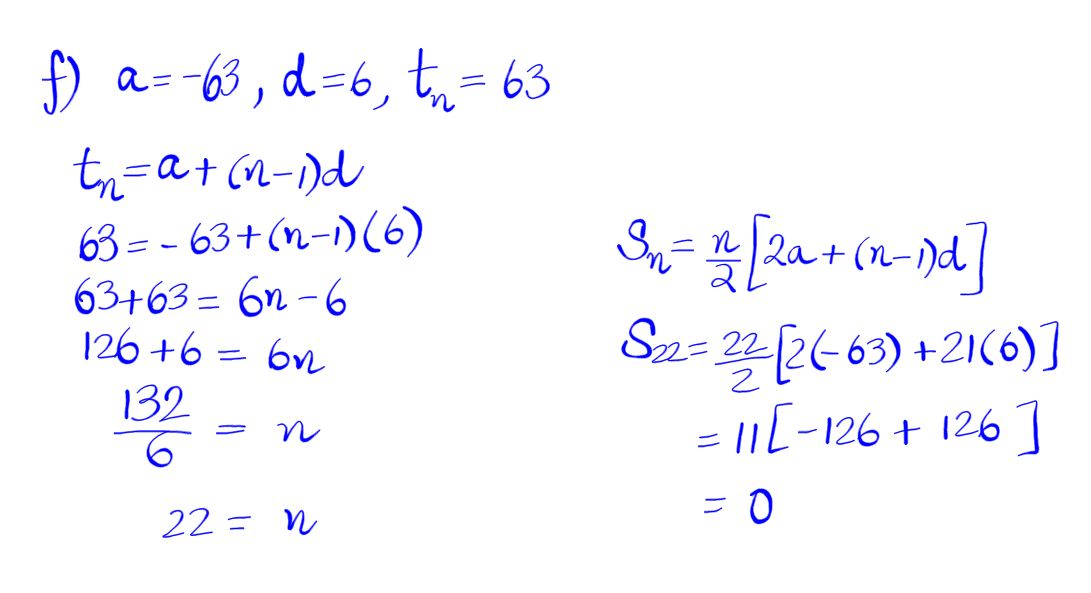 f) a=-63, d=6, tₙ= 63
tₙ=a+(n-1)d
63=-63+(n-1)(6)
63+63= 6n-6
126+6 = 6n
132/6 = n
22 = n
Sₙ= n/2[2a+(n-1)d]
S₂₂= 22/2[2(-63)+21(6)]
= 11[-126+ 126]
= 0